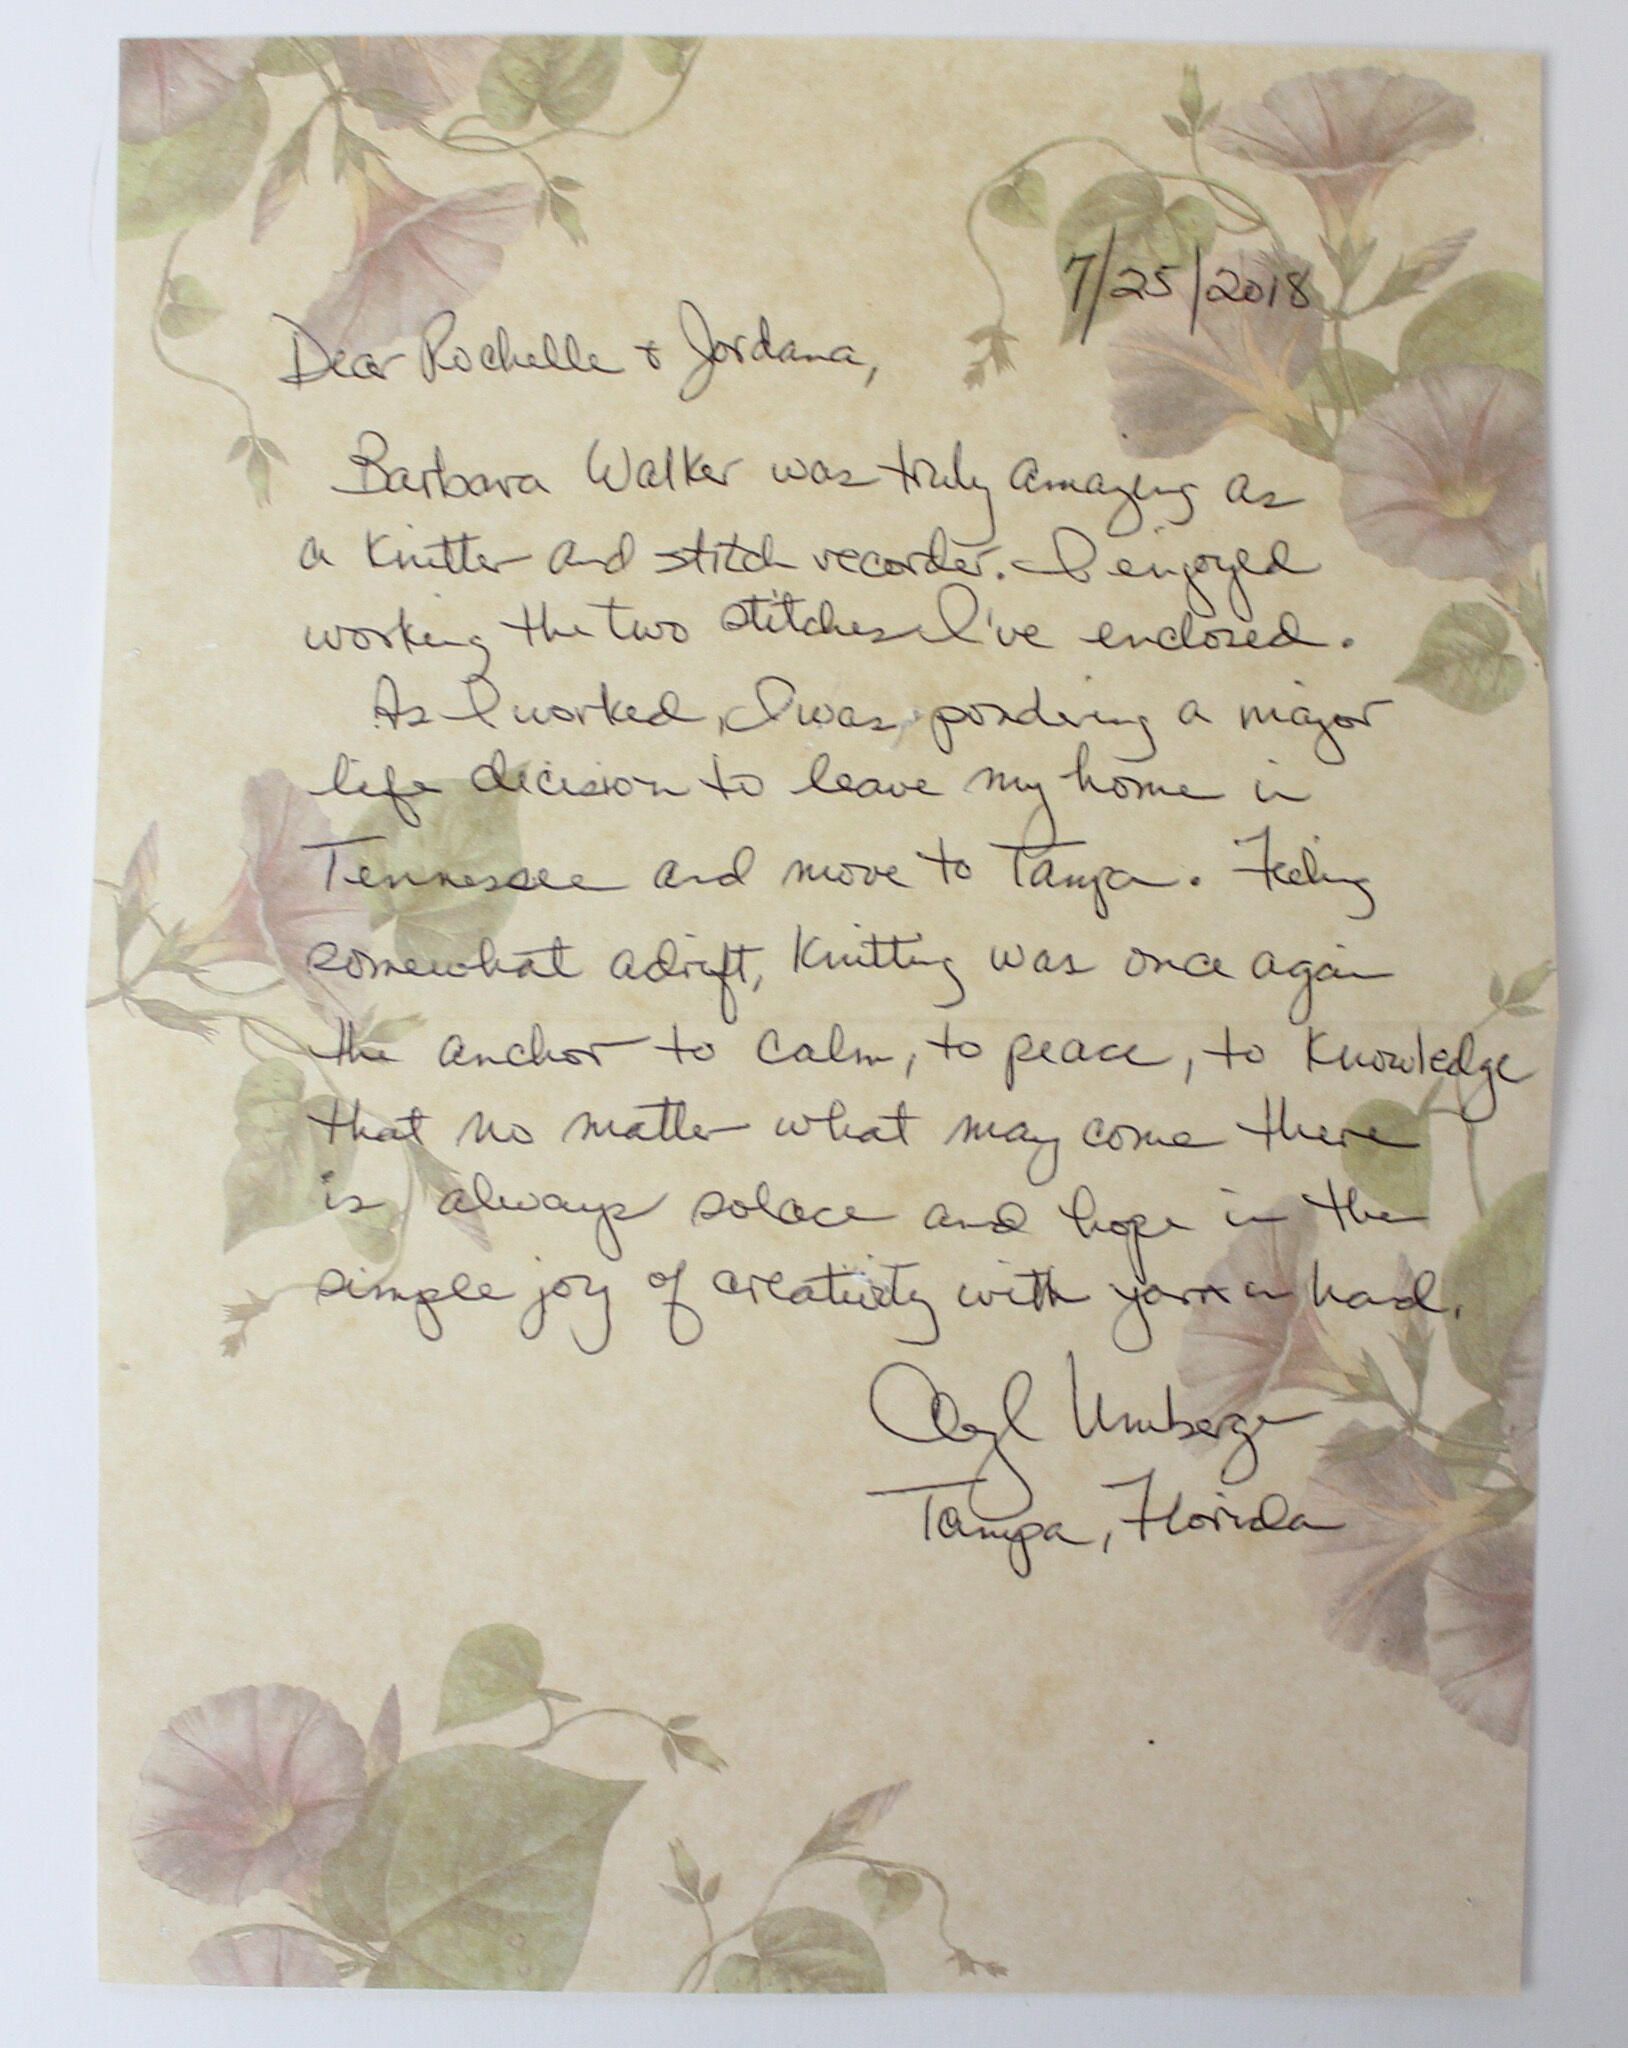 7/25/2018
Dear Rochelle + Jordana,
Barbara Walker was truly amazing as
a knitter and stitch recorder. I enjoyed
working the two stitches I've enclosed.
As I worked, I was pondering a major
life decision to leave my home in
Tennessee and move to Tampa. Feeling
somewhat adrift, knitting was once again
the anchor to calm, to peace, to knowledge
that no matter what may come there
is always solace and hope in the
simple joy of creativity with yarn in hand.
Umberger
Tampa, Florida